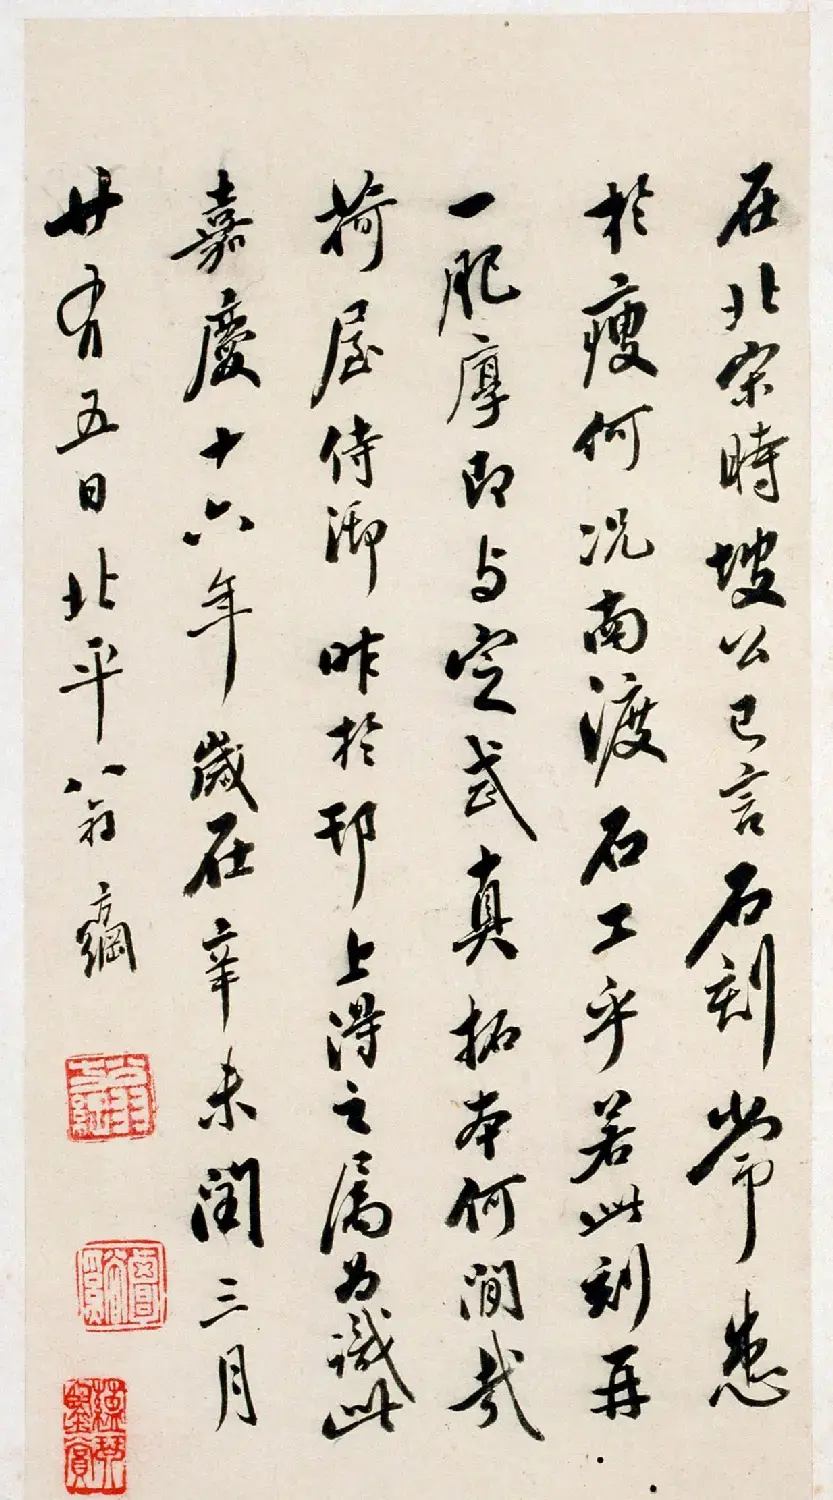 在北宋時坡公已言石刻常患
於瘦何况南渡石工乎若此刻再
一肥厚即与定武真拓本何間哉
荷屋侍御昨於邗上得之属为識此
嘉慶十六年歲在辛未閏三月
廿有五日北平翁方綱